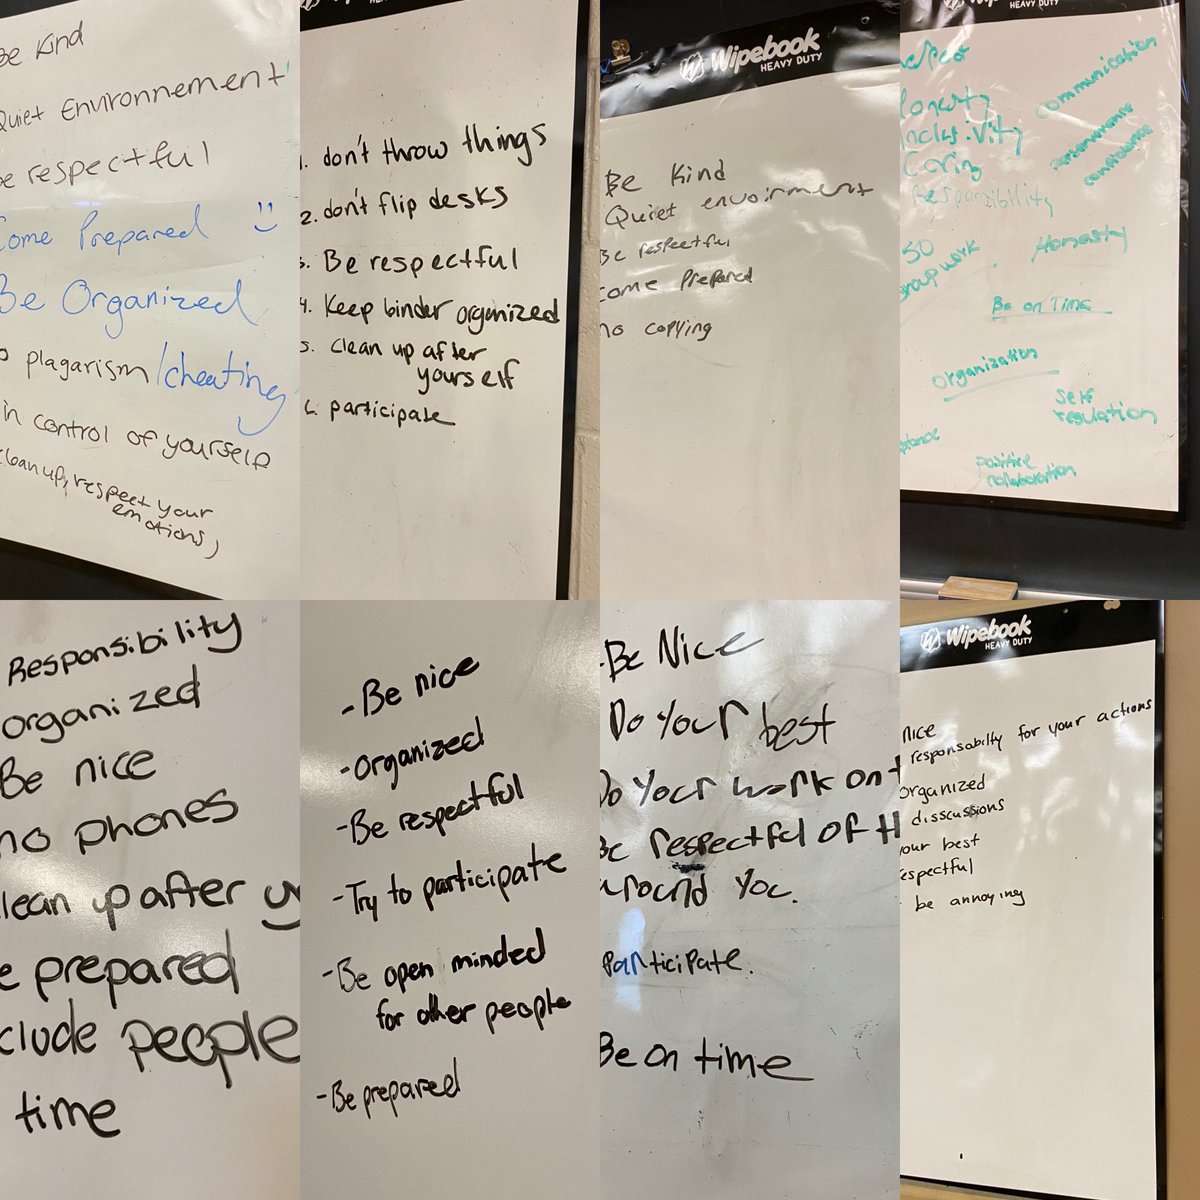 Be Kind
Quiet Environnement
Be respectful
Come Prepared
Be Organized
plagarism/cheating
in control of yourself
clean up, respect your
emotions,
HEAVY DUTY
1. don't throw things
2. don't flip desks
3. Be respectful
4. Keep binder organized
5. Clean up after
yourself
6. participate
Wipebook
HEAVY DUTY
Be Kind
Quiet envoirnment
Be respectful
come Prepared
no copying
HEAVY DUTY
communication
Inclusivity
Caring
Responsibility
perserverence
confidence
50
group work
Honesty
Be on Time
organization
Self
regulation
positive
collaboration
Responsibility
organized
Be nice
no phones
clean up after y
prepared
clude people
time
-Be nice
-organized
-Be respectful
-Try to participate
-Be open minded
for other people
-Be prepared
-Be Nice
Do Your best
Do Your work on t
Be respectful of th
around You.
Participate.
Be on time
Wipebook
HEAVY DUTY
nice
responsabilty for your actions
organized
disscussions
your best
espectful
be annoying